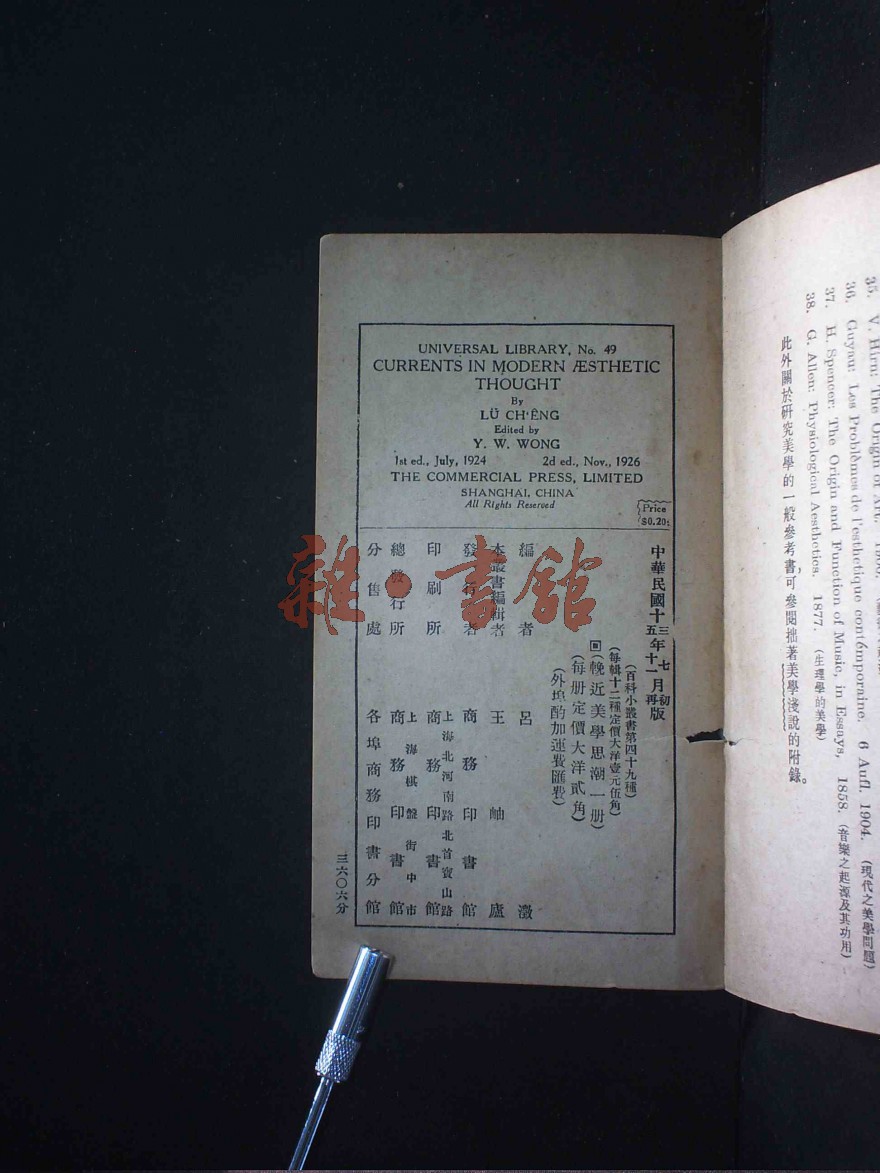 UNIVERSAL LIBRARY, No. 49
CURRENTS IN MODERN ÆSTHETIC
THOUGHT
By
LÜ CH'ÊNG
Edited by
Y. W. WONG
1st ed., July, 1924 2d ed., Nov., 1926
THE COMMERCIAL PRESS, LIMITED
SHANGHAI, CHINA
All Rights Reserved
Price
$0.20
中華民國十三年七月初版
五年十一月再版
(百科小叢書第四十九種)
(每輯十二種定價大洋壹元伍角)
(輓近美學思潮一册)
(每册定價大洋貳角)
(外埠酌加運費匯費)
編者 呂澂
本叢書編輯者 王岫廬
發行者 商務印書館
印刷所 上海北河南路北首寶山路 商務印書館
總發行所 上海棋盤街中市 商務印書館
分售處 各埠商務印書分館
三六〇六分
雜·書館
35. V. Hirn: The Origin of Art. 1900.
36. Guyau: Les Problèmes de l'esthetique contémporaine. 6 Aufl. 1904. (現代之美學問題)
37. H. Spencer: The Origin and Function of Music, in Essays, 1858. (音樂之起源及其功用)
38. G. Allen: Physiological Aesthetics. 1877. (生理學的美學)
此外關於硏究美學的一般參考書,可參閱拙著美學淺說的附錄。